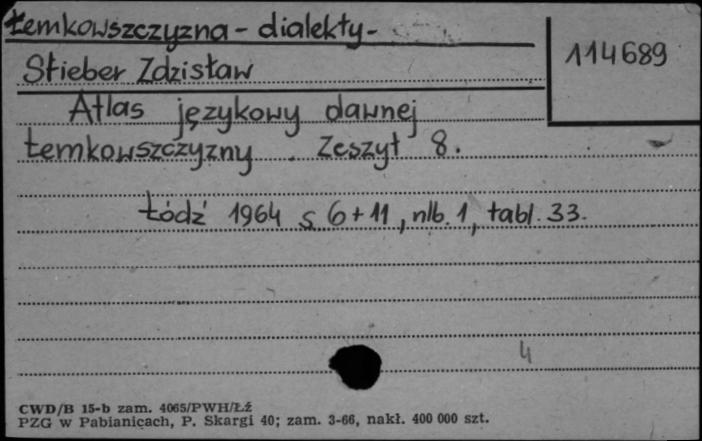 Łemkowszczyzna - dialekty -
114689
Stieber Zdzisław
Atlas językowy dawnej
Łemkowszczyzny . Zeszyt 8.
Łódź 1964 s 6+11, nlb. 1, tabl. 33.
4
CWD/B 15-b zam. 4065/PWH/Łź
PZG w Pabianicach, P. Skargi 40; zam. 3-66, nakł. 400 000 szt.